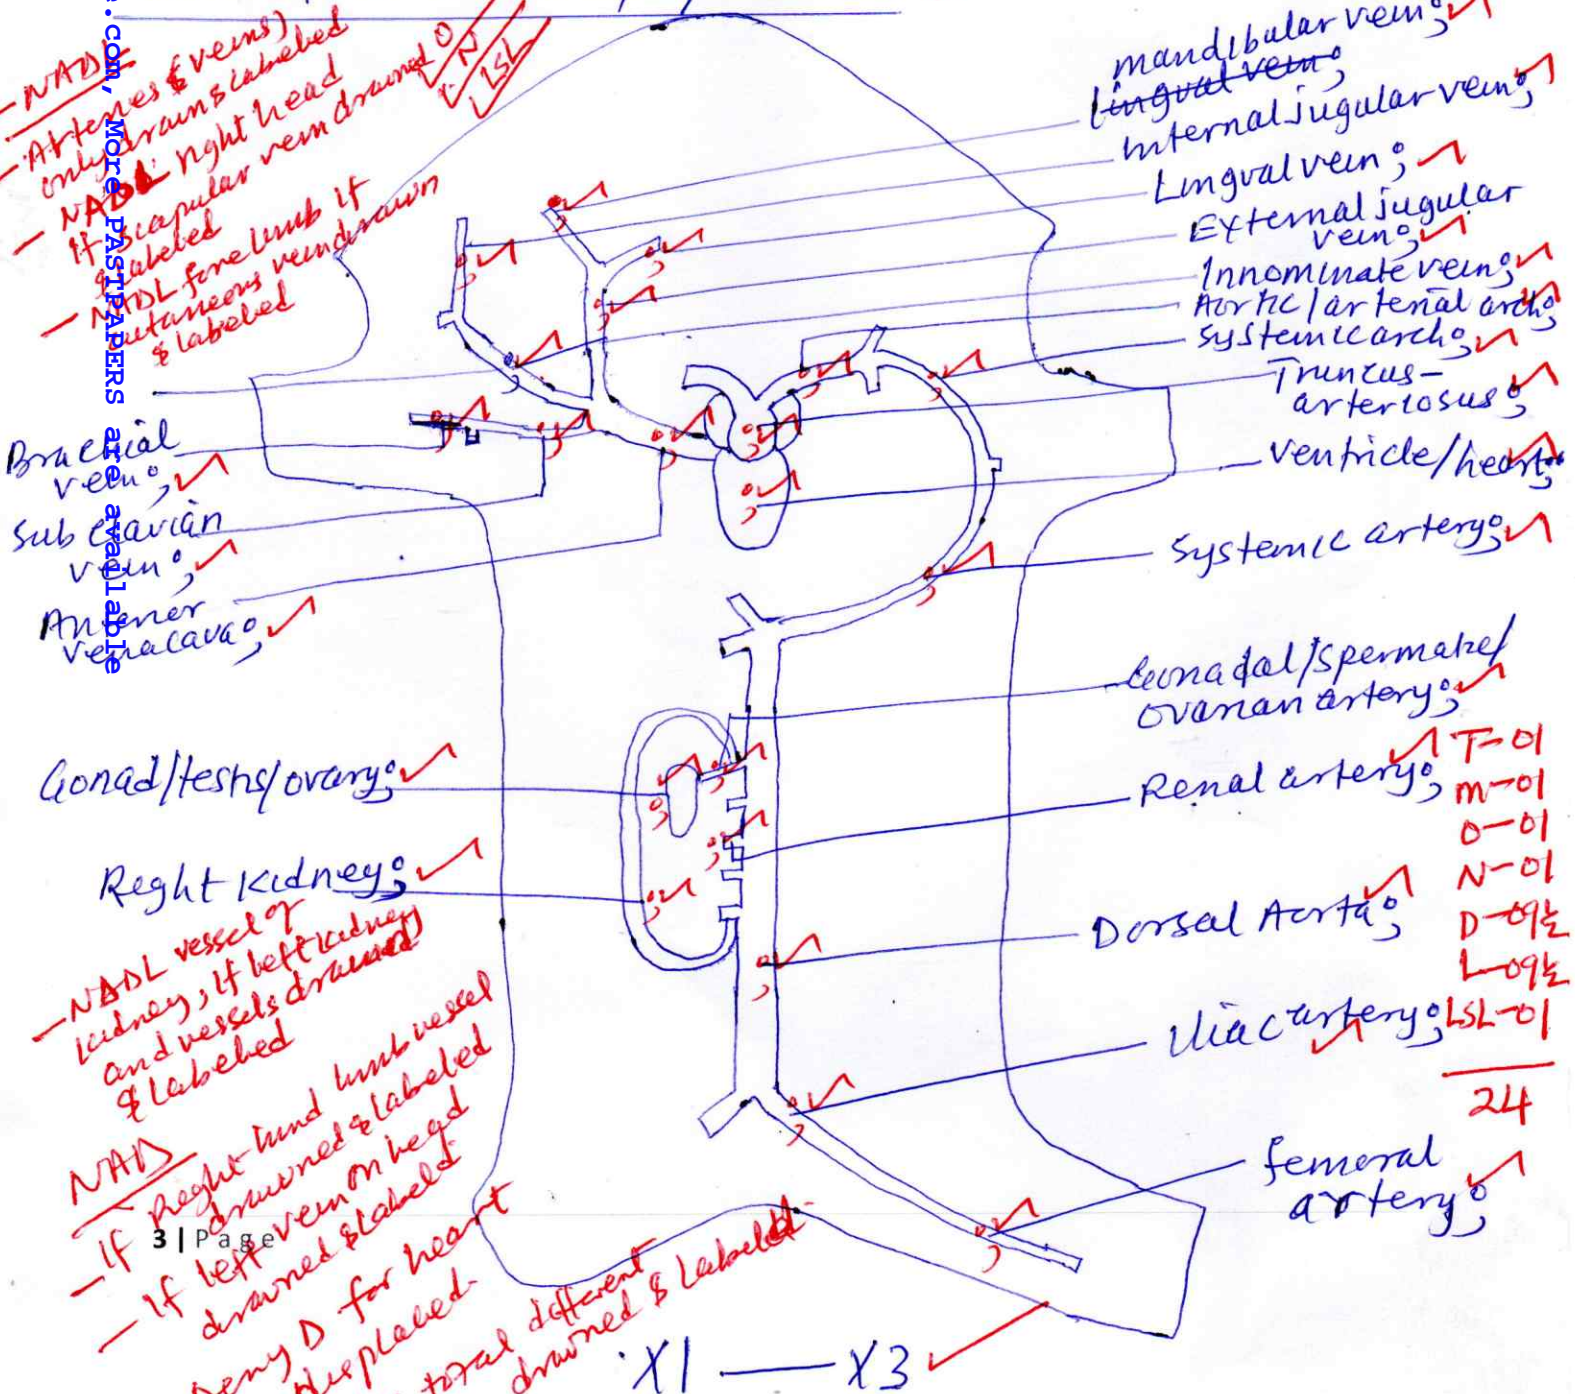 - NADL
- Arteries (veins)
only drawn & labebed
- NADL right head
if scapular vein drawned
& labebed
- NADL forelimb if
cutaneous vein drawn
& labebed
O
N
LSL
.com, More PASTPAPERS are available
mandibular vein;
lingual vein;
internal jugular vein;
Lingual vein;
External jugular
vein;
Innominate vein;
Aortic/arterial arch;
systemic arch;
Truncus-
arteriosus;
ventricle/heart;
Systemic artery;
Gonadal/spermatic/
ovarian artery;
Renal artery;
Dorsal Aorta;
iliac artery;
femoral
artery;
Brachial
vein;
Subclavian
vein;
Anterior
venacava;
Gonad/testis/ovary;
Reght kidney;
- NADL vessel of
kidney, if left kidney
and vessels drawned
& labebed
NAD
- If Reght hind limb vessel
drawned & labebed
- If left vein on head
drawned & labeld
Deny D for heart
displaced
total different
drawned & labeled
3 | Page
T-01
m-01
O-01
N-01
D-09½
L-09½
LSL-01
24
X1 — X3